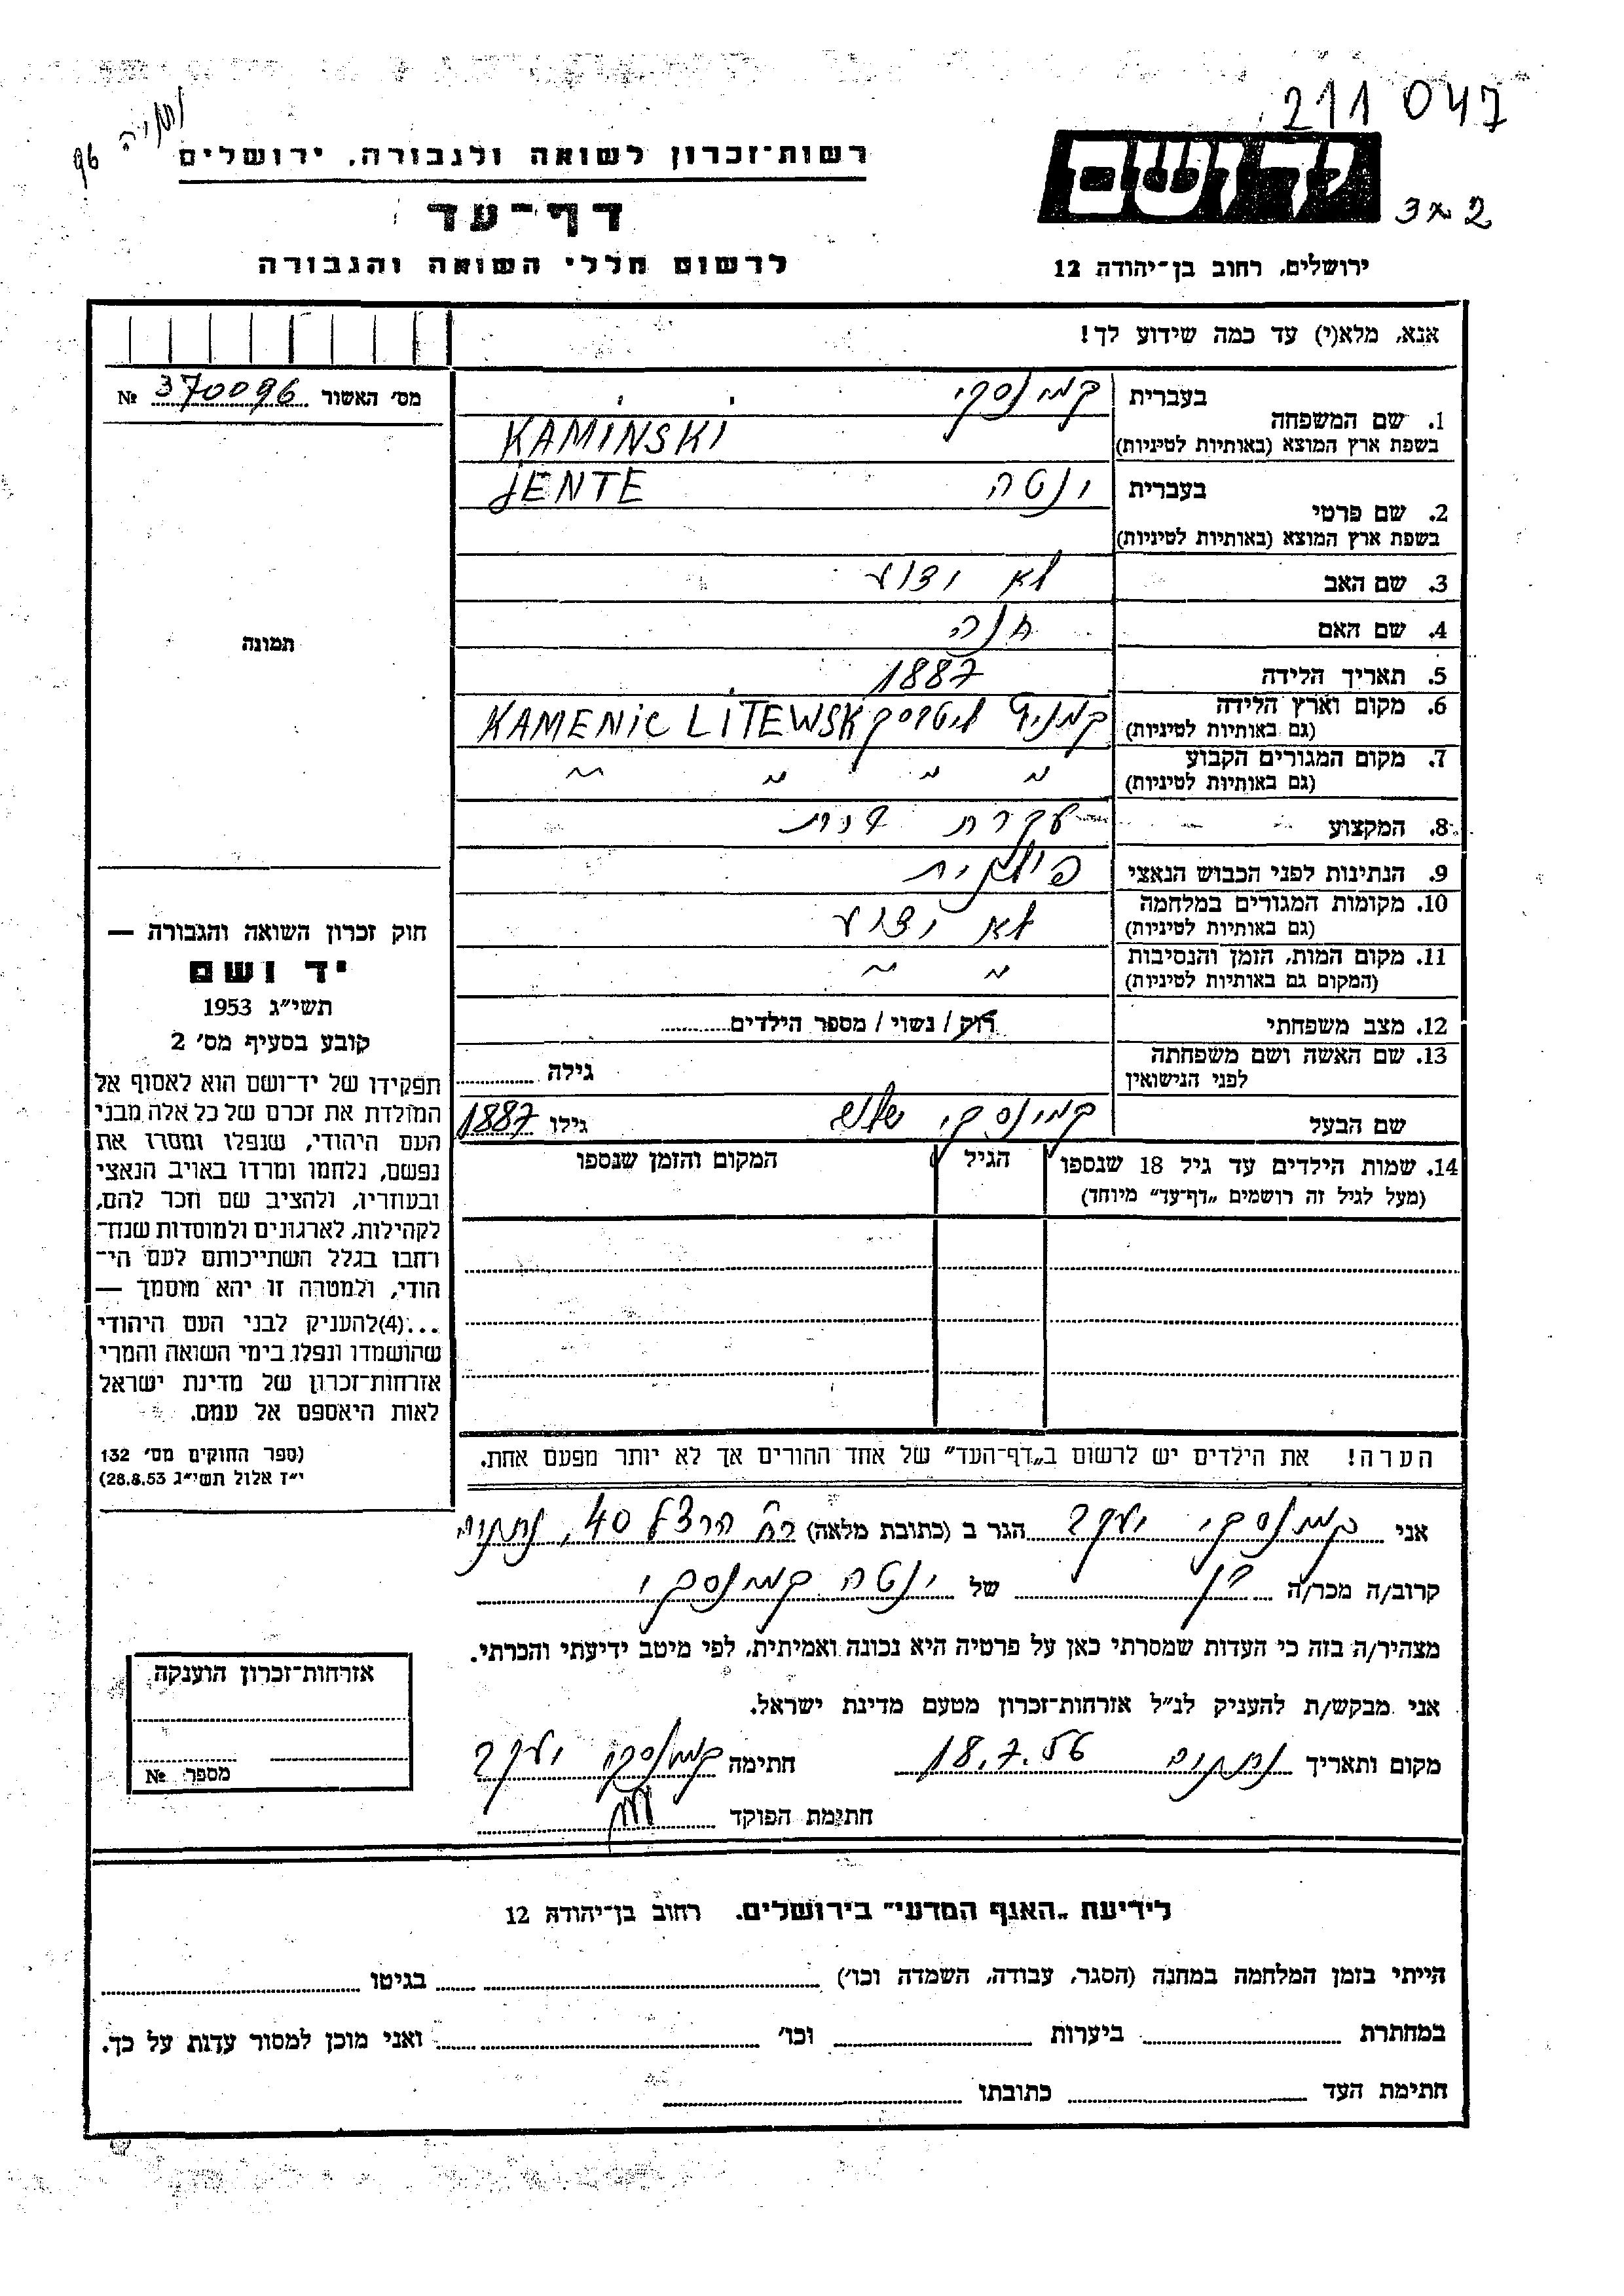 211 047
נתניה
96
רשות־זכרון לשואה ולגבורה, ירושלים
יד ושם
3 מ 2
דף־עד
לרשום חללי השואה והגבורה
ירושלים, רחוב בן־יהודה 12
אנא, מלא(י) עד כמה שידוע לך!
מס׳ האשור № 370096
1. שם המשפחה בעברית קמינסקי
בשפת ארץ המוצא (באותיות לטיניות) KAMINSKI
2. שם פרטי בעברית ינטה JENTE
בשפת ארץ המוצא (באותיות לטיניות)
3. שם האב לא ידוע
4. שם האם חנה
תמונה
5. תאריך הלידה 1887
6. מקום וארץ הלידה קמניץ ליטבסק KAMENIC LITEWSK
(גם באותיות לטיניות)
7. מקום המגורים הקבוע " " " "
(גם באותיות לטיניות)
8. המקצוע עקרת בית
9. הנתינות לפני הכבוש הנאצי פולנית
10. מקומות המגורים במלחמה לא ידוע
(גם באותיות לטיניות)
11. מקום המות, הזמן והנסיבות " "
(המקום גם באותיות לטיניות)
12. מצב משפחתי רוק / נשוי / מספר הילדים
13. שם האשה ושם משפחתה גילה
לפני הנישואין
שם הבעל קמינסקי גילו 1887
14. שמות הילדים עד גיל 18 שנספו הגיל המקום והזמן שנספו
(מעל לגיל זה רושמים „דף־עד" מיוחד)
חוק זכרון השואה והגבורה —
יד ושם
תשי״ג 1953
קובע בסעיף מס׳ 2
תפקידו של יד־ושם הוא לאסוף אל
המולדת את זכרם של כל אלה מבני
העם היהודי, שנפלו ומסרו את
נפשם, נלחמו ומרדו באויב הנאצי
ובעוזריו, ולהציב שם וזכר להם,
לקהילות, לארגונים ולמוסדות שנח־
רחבו בגלל השתייכותם לעם הי־
הודי, ולמטרה זו יהא מוסמך —
...(4)להעניק לבני העם היהודי
שהושמדו ונפלו בימי השואה והמרי
אזרחות־זכרון של מדינת ישראל
לאות היאספם אל עמם.
(ספר החוקים מס׳ 132
י״ז אלול תשי״ג 28.8.53)
הערה! את הילדים יש לרשום ב„דף־העד" של אחד ההורים אך לא יותר מפעם אחת.
אני קמינסקי יעקב הגר ב (כתובת מלאה) רח׳ הרצל 40, נתניה
קרוב/ה מכר/ה בן של ינטה קמינסקי
מצהיר/ה בזה כי העדות שמסרתי כאן על פרטיה היא נכונה ואמיתית, לפי מיטב ידיעתי והכרתי.
אני מבקש/ת להעניק לנ״ל אזרחות־זכרון מטעם מדינת ישראל.
מקום ותאריך נתניה 18.7.56 חתימה קמינסקי יעקב
חתימת הפוקד
אזרחות־זכרון הוענקה
מספר №
לידיעת „האגף המדעי" בירושלים, רחוב בן־יהודה 12
הייתי בזמן המלחמה במחנה (הסגר, עבודה, השמדה וכו׳) בגיטו
במחתרת ביערות וכו׳ ואני מוכן למסור עדות על כך.
חתימת העד כתובתו